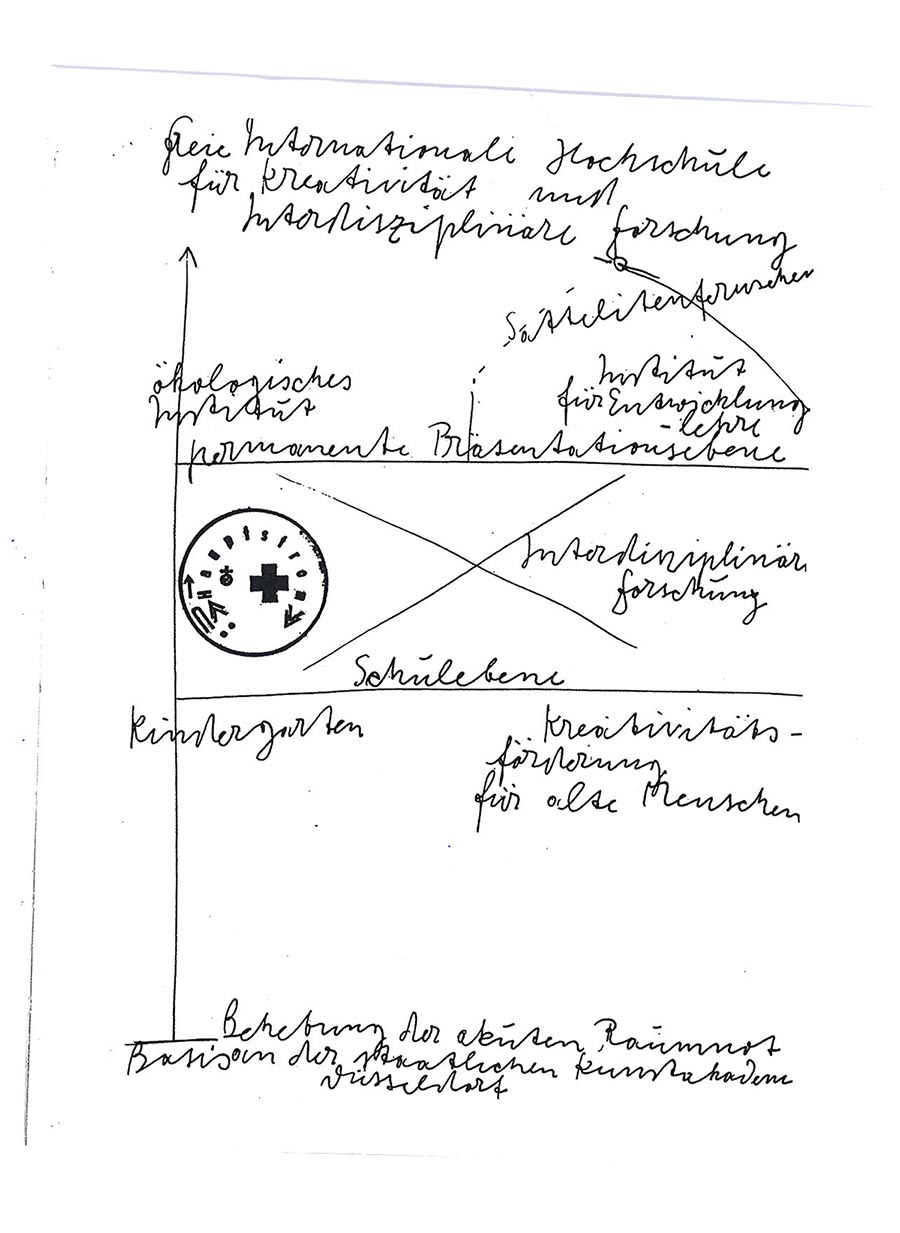 freie Internationale Hochschule
für Kreativität und
Interdisziplinäre forschung
Satelitenforschen
ökologisches
Institut
Institut
für Entwicklung
-lehre
permanente Präsentationsebene
Hauptstrom
Interdisziplinär
forschung
Schulebene
Kindergarten
Kreativitäts-
förderung
für alte Menschen
Behebung der akuten Raumnot
Basis an der staatlichen Kunstakademie
Düsseldorf